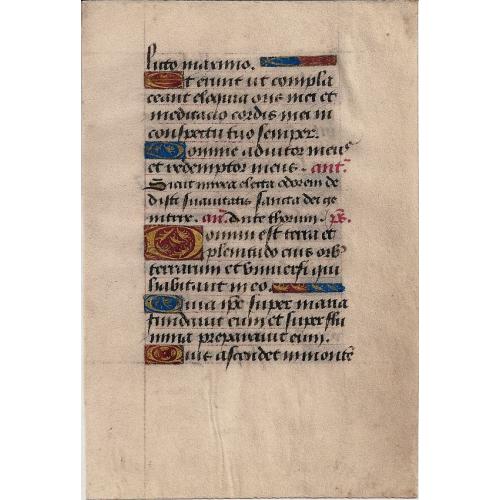 licto maximo.
Et erunt ut compla
ceant eloquia oris mei et
meditacio cordis mei in
conspectu tuo semper.
Domine adiutor meus
et redemptor meus. ant.
Sicut mirra electa odorem de
disti suavitatis sancta dei ge
nitrix. an. Ante thorum. ps.
Domini est terra et
plenitudo eius orb
terrarum et universi qui
habitant in eo.
Quia ipe super maria
fundavit eum et super flu
mina preparavit eum.
Quis ascendet in monte